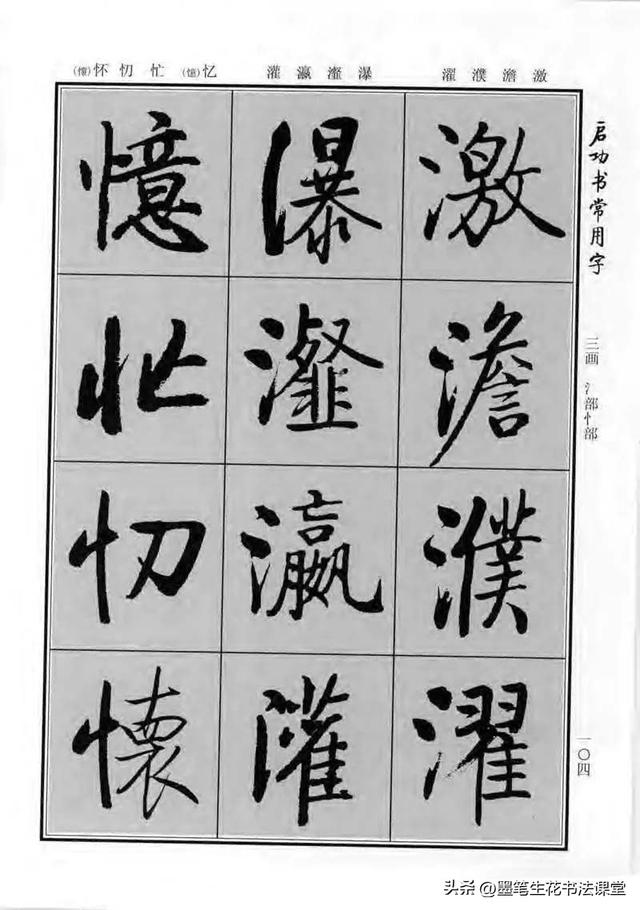 启功书常用字
三画 氵部忄部
一〇四
激澹濮濯
瀑瀣瀛灌
忆(憶)忙忉怀(懷)
激
澹
濮
濯
瀑
瀣
瀛
灌
憶
忙
忉
懷
头条 @墨笔生花书法课堂